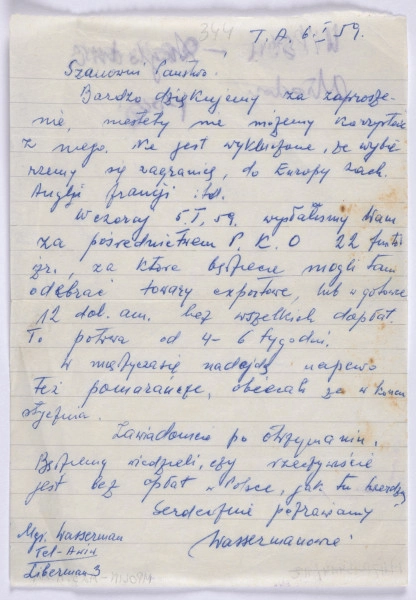 344
T. A. 6.I 59.
Szanowni Państwo.
Bardzo dziękujemy za zaprosze-
nie, niestety nie możemy korzystać
z niego. Nie jest wykluczone, że wybie
rzemy się zagranicę, do Europy zach.
Anglji francji itd.
Wczoraj 5.I, 59. wysłaliśmy Wam
za pośrednictwem P. K. O 22 funty
izr., za które będziecie mogli tam
odebrać towary exportowe, lub w gotówce
12 dol. am. bez wszelkich dopłat.
To potrwa od 4-6 tygodni.
W międzyczasie nadejdą napewo
też pomarańcze, obiecali za w koncu
stycznia.
Zawiadomcie po otrzymaniu.
Będziemy wiedzieli, czy rzeczywiście
jest bez opłat w Polsce, jak tu twierdzą
Serdecznie pozdrawiamy
Wassermanowie
Mgr. Wasserman
Tel-Aviv
Liberman 3